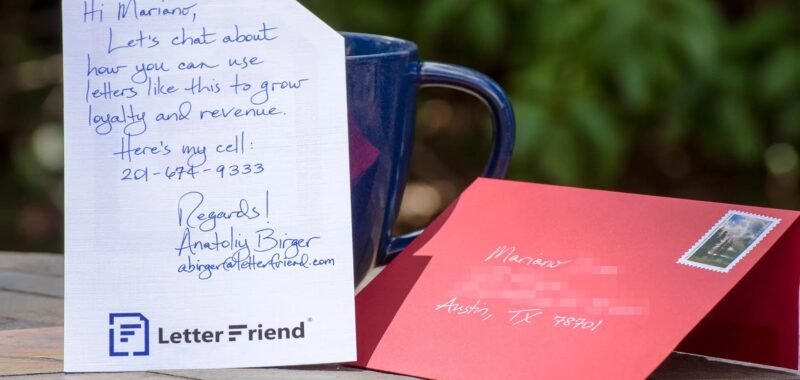 Hi Mariano,
Let's chat about
how you can use
letters like this to grow
loyalty and revenue.
Here's my cell:
201-674-9333
Regards!
Anatoliy Birger
abirger@letterfriend.com
LetterFriend®
Mariano
Austin, TX 78701